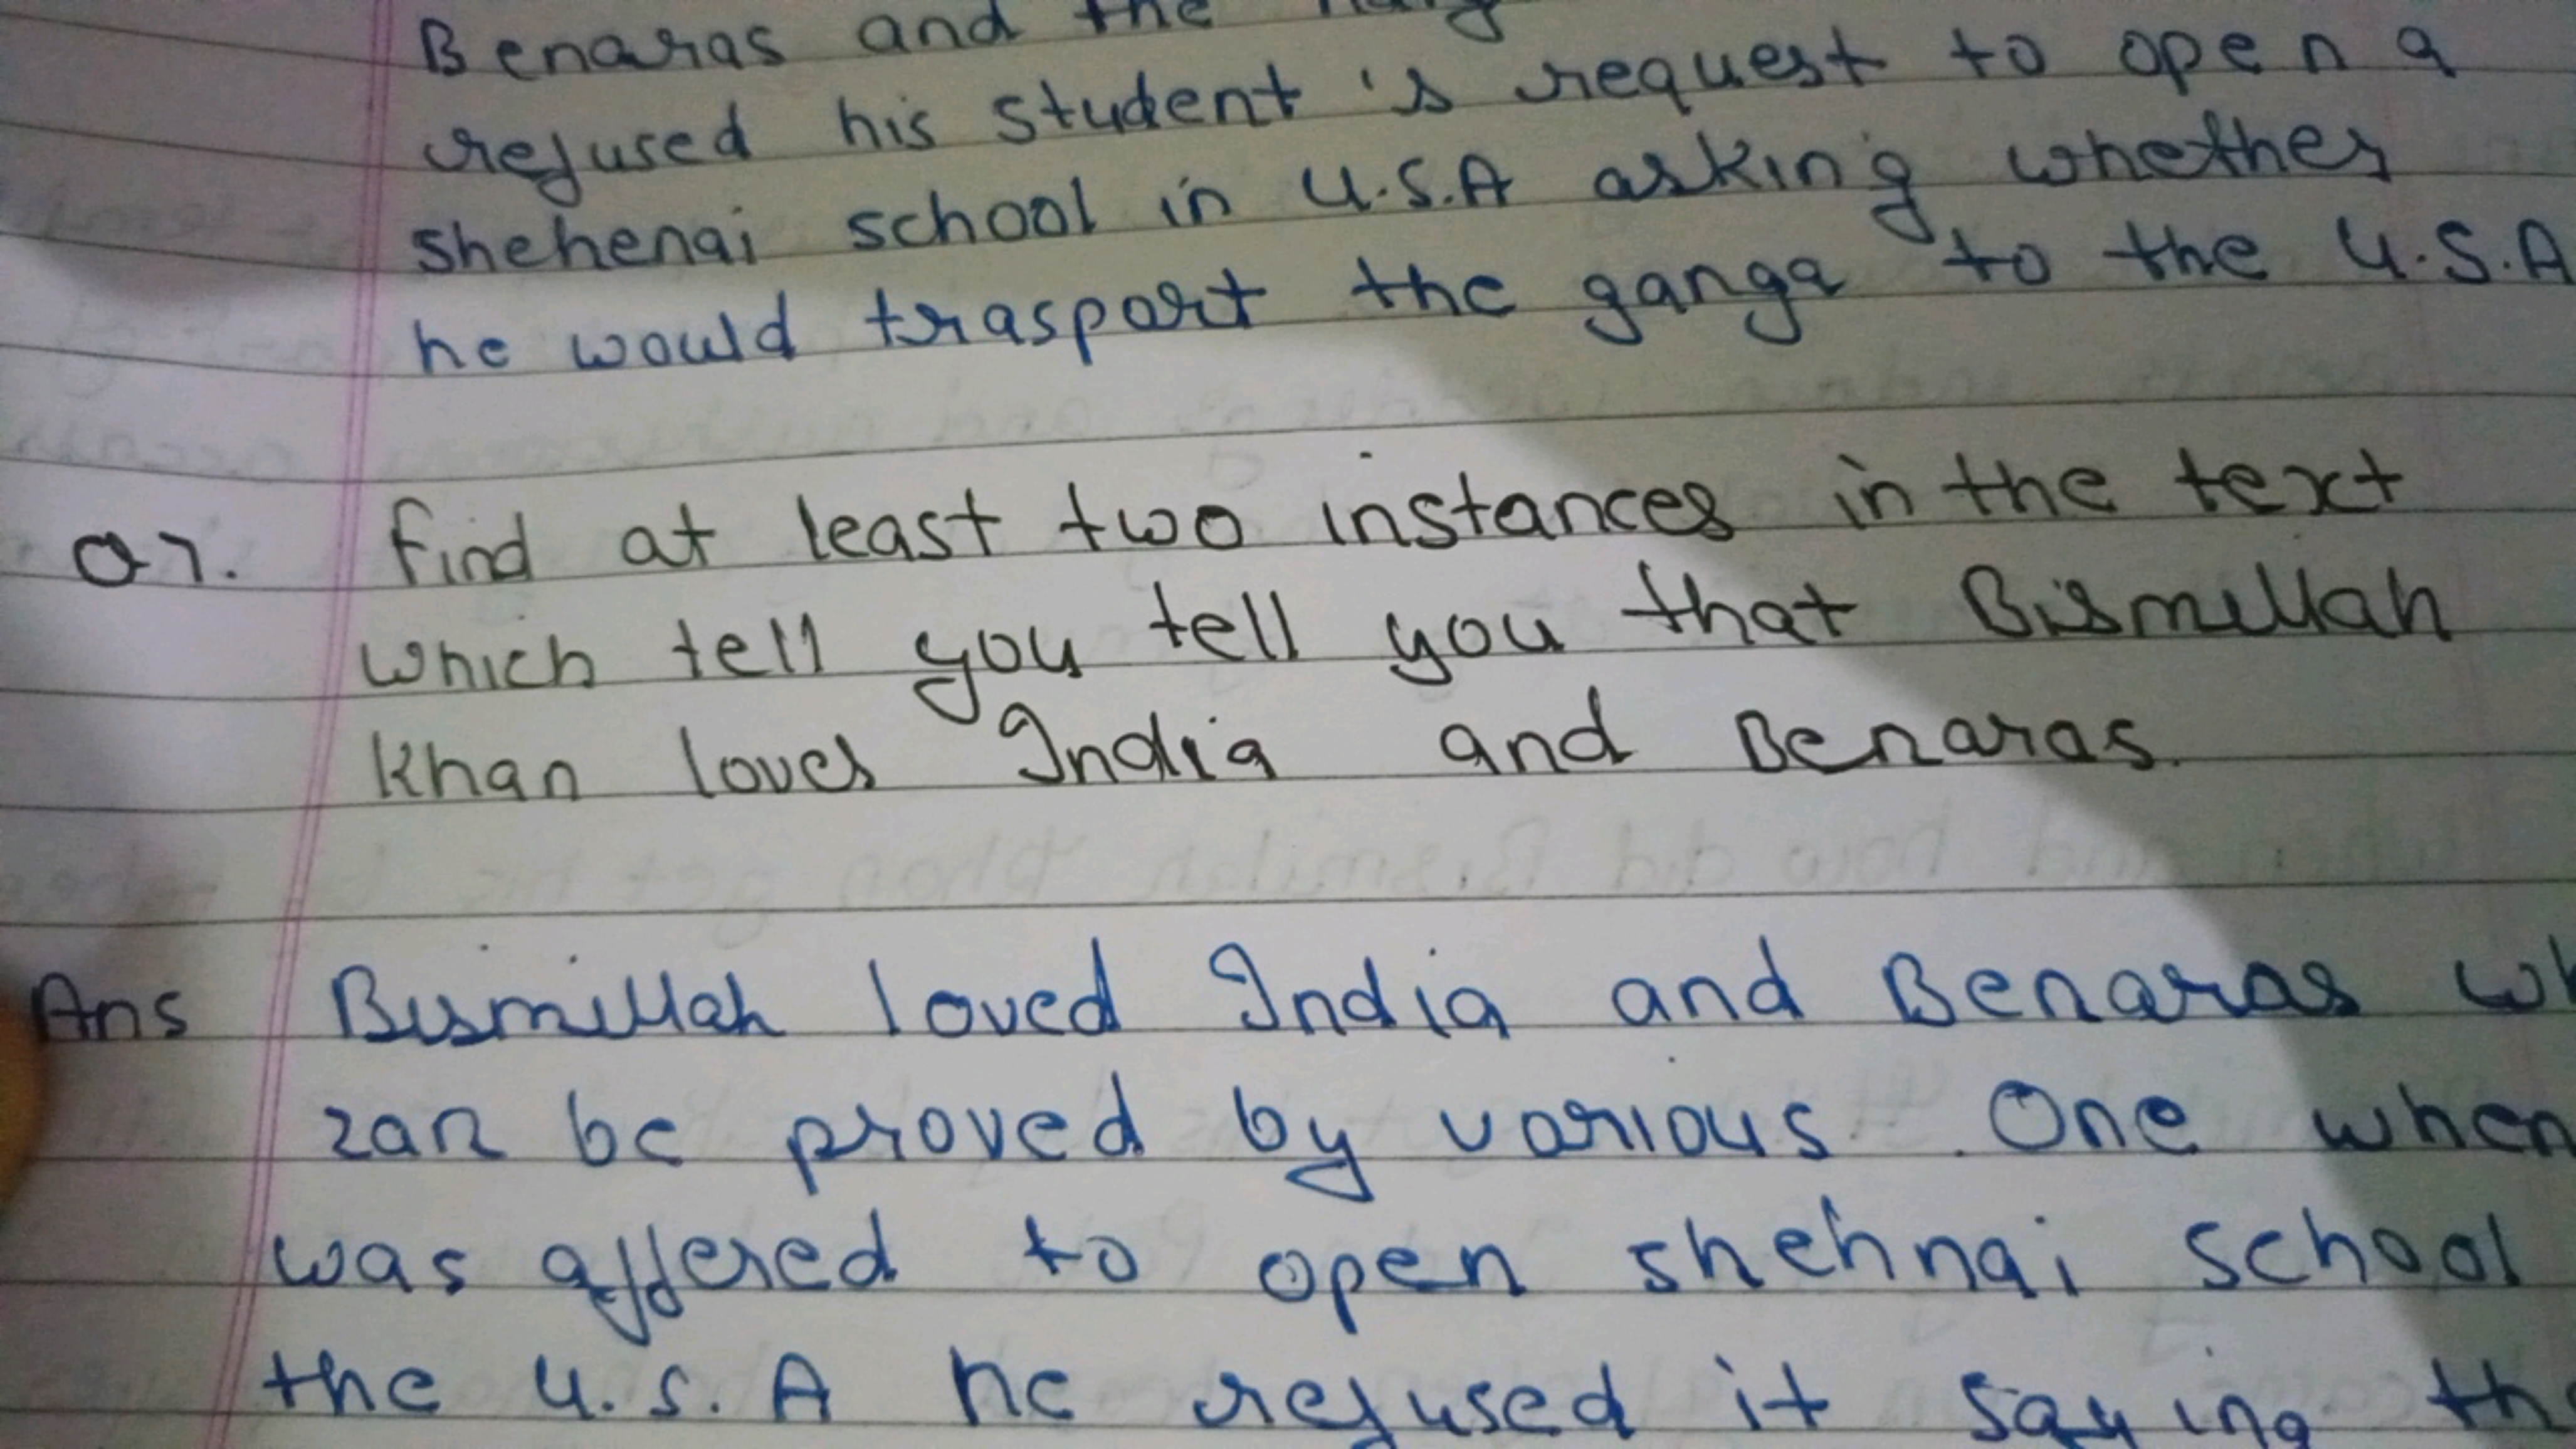 Benaras and the
refused his student's request to open a
shehenai school in U.S.A asking whether
he would trasport the ganga to the U.S.A
Q7. find at least two instances in the text
which tell you tell you that Bismillah
Khan loves India and Benaras.
Ans Bismillah loved India and Benaras
can be proved by various. One when
was offered to open shehnai school
the U.S.A he refused it saying